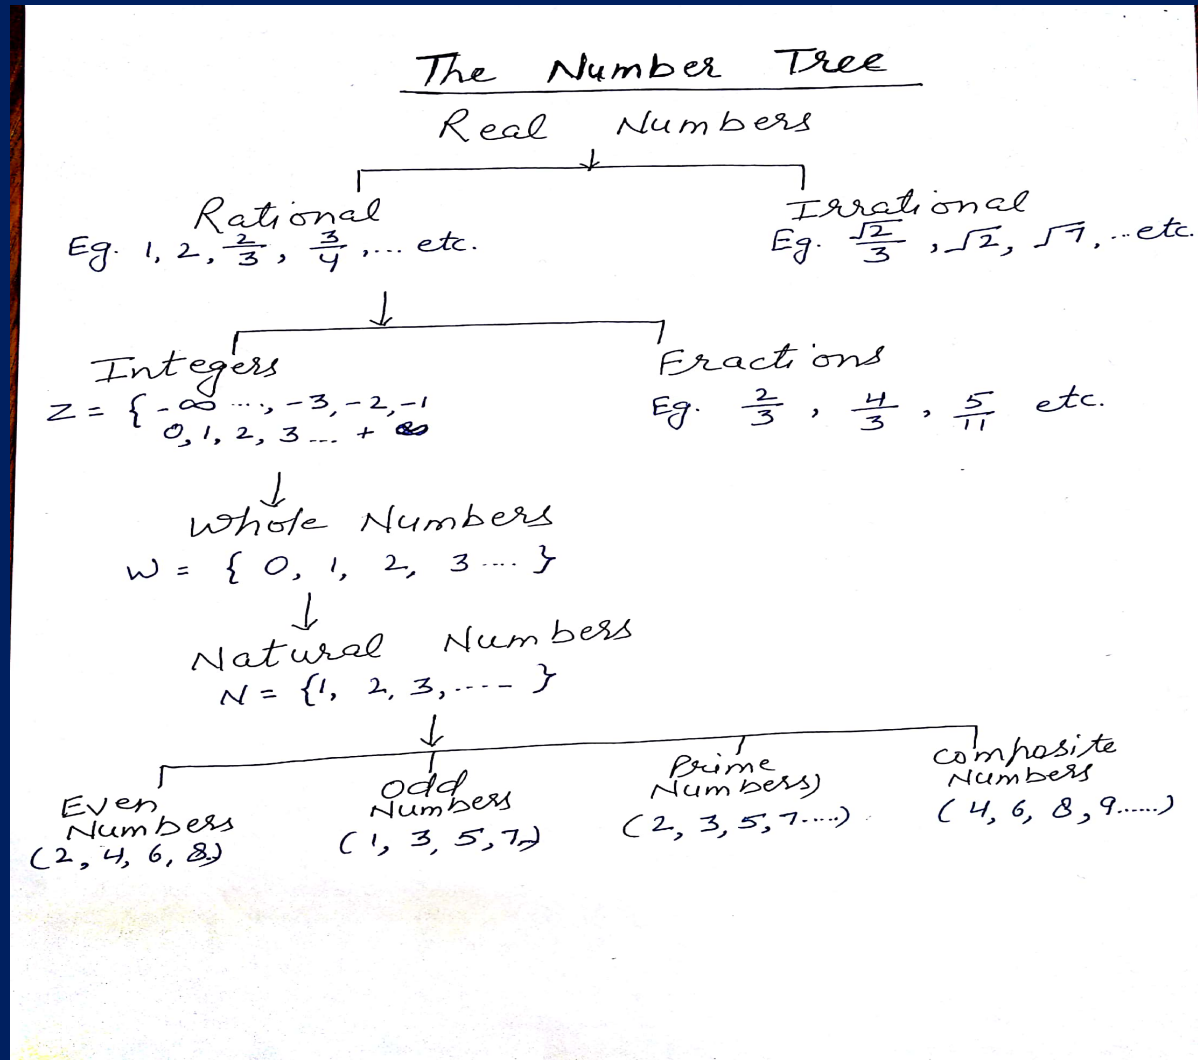 The Number Tree
Real Numbers
Rational
Irrational
Eg. 1, 2, 2/3, 3/4, ... etc.
Eg. √2/3, √2, √7, ... etc.
Integers
Fractions
Z = { -∞ ..., -3, -2, -1
0, 1, 2, 3 ... + ∞
Eg. 2/3, 4/3, 5/11 etc.
Whole Numbers
W = { 0, 1, 2, 3 .... }
Natural Numbers
N = {1, 2, 3, ..... }
Even
Numbers
(2, 4, 6, 8.)
Odd
Numbers
(1, 3, 5, 7..)
Prime
Numbers)
(2, 3, 5, 7.....)
composite
Numbers
(4, 6, 8, 9......)